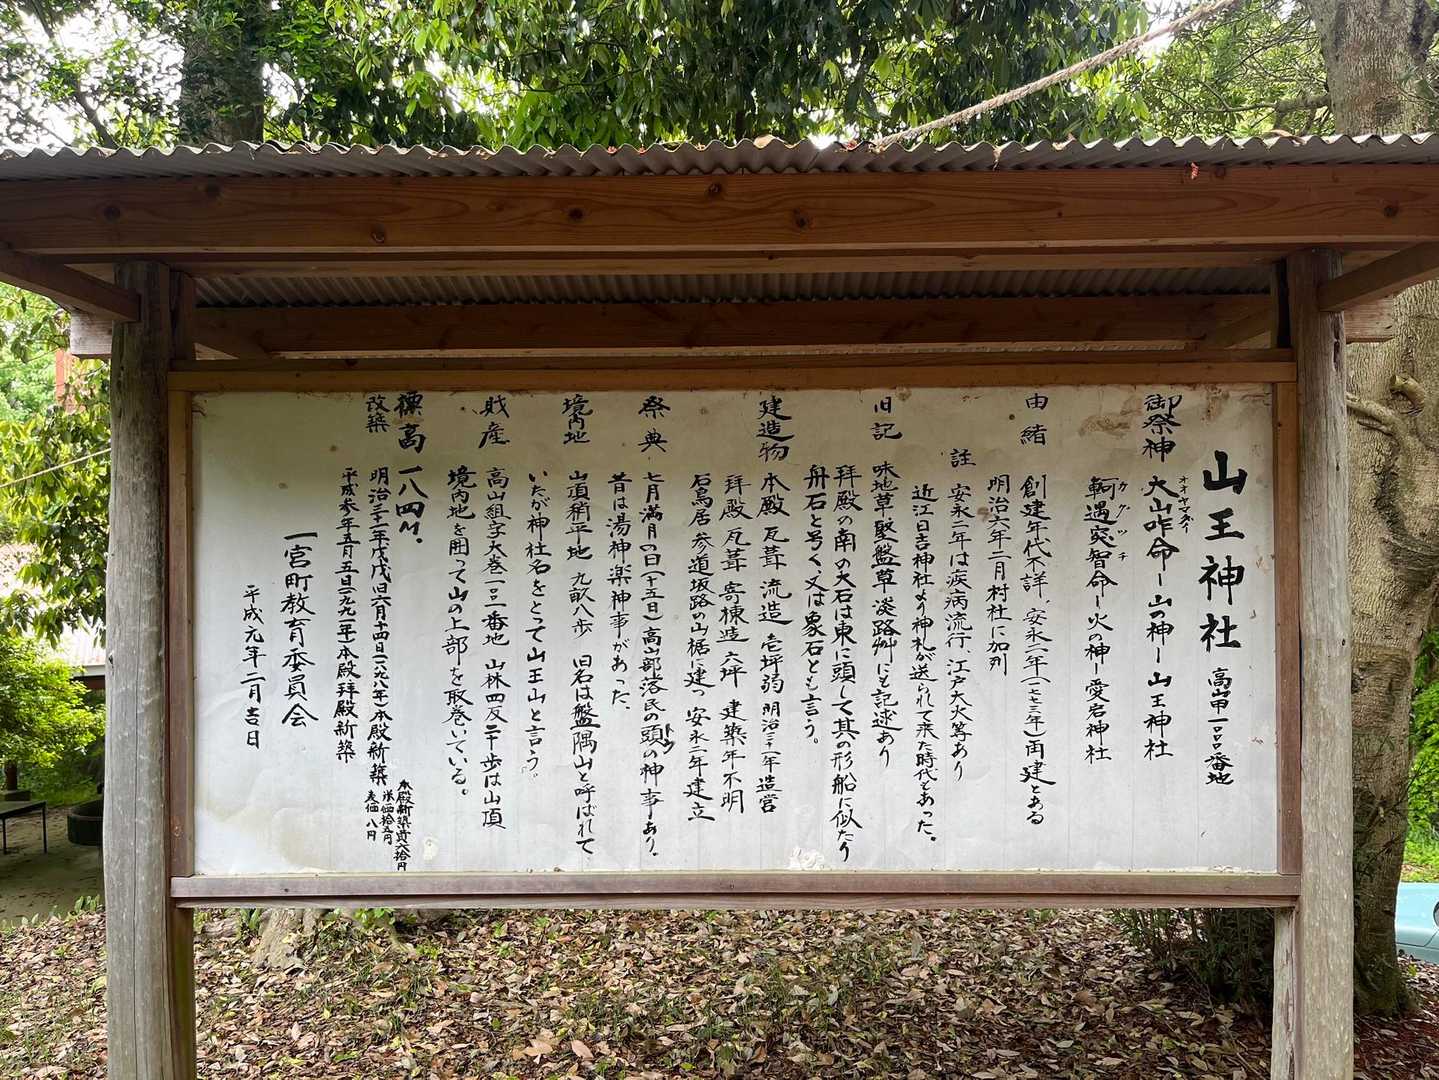 山王神社 高山甲一〇〇番地
御祭神 大山咋命ー山の神ー山王神社
オオヤマグイ
軻遇突智命ー火の神ー愛宕神社
カグツチ
由緒 創建年代不詳、安永二年(一七七三年)再建とある
明治六年二月村社に加列
註 安永二年は疾病流行、江戸大火等あり
近江日吉神社より神札が送られて来た時代もあった。
旧記 味地草堅盤草、淡路草にも記述あり
拝殿の南の大石は東に頭して其の形船に似たり
舟石と号く、又は象石とも言う。
建造物 本殿 瓦葺 流造 壱坪弱 明治三十一年造営
拝殿 瓦葺 寄棟造 六坪 建築年不明
石鳥居参道坂路の山裾に建つ 安永二年建立
祭典 七月満月の日(十五日)高山部落民の頭の神事あり。
トウ
昔は湯神楽神事があった。
境内地 山頂稍平地 九畝八歩 旧名は盤隅山と呼ばれて
いたが神社名をとって山王山と言う。
財産 高山組字大巻一〇一番地 山林四反二十歩は山頂
境内地を囲って山の上部を取巻いている。
標高 一八四M.
改築 明治三十一年戊戌旧六月十四日(一八九八年)本殿新築
本殿新築費六拾円
米価拾五円
麦価八円
平成参年五月五日(一九九一年)本殿拝殿新築
一宮町教育委員会
平成元年二月吉日